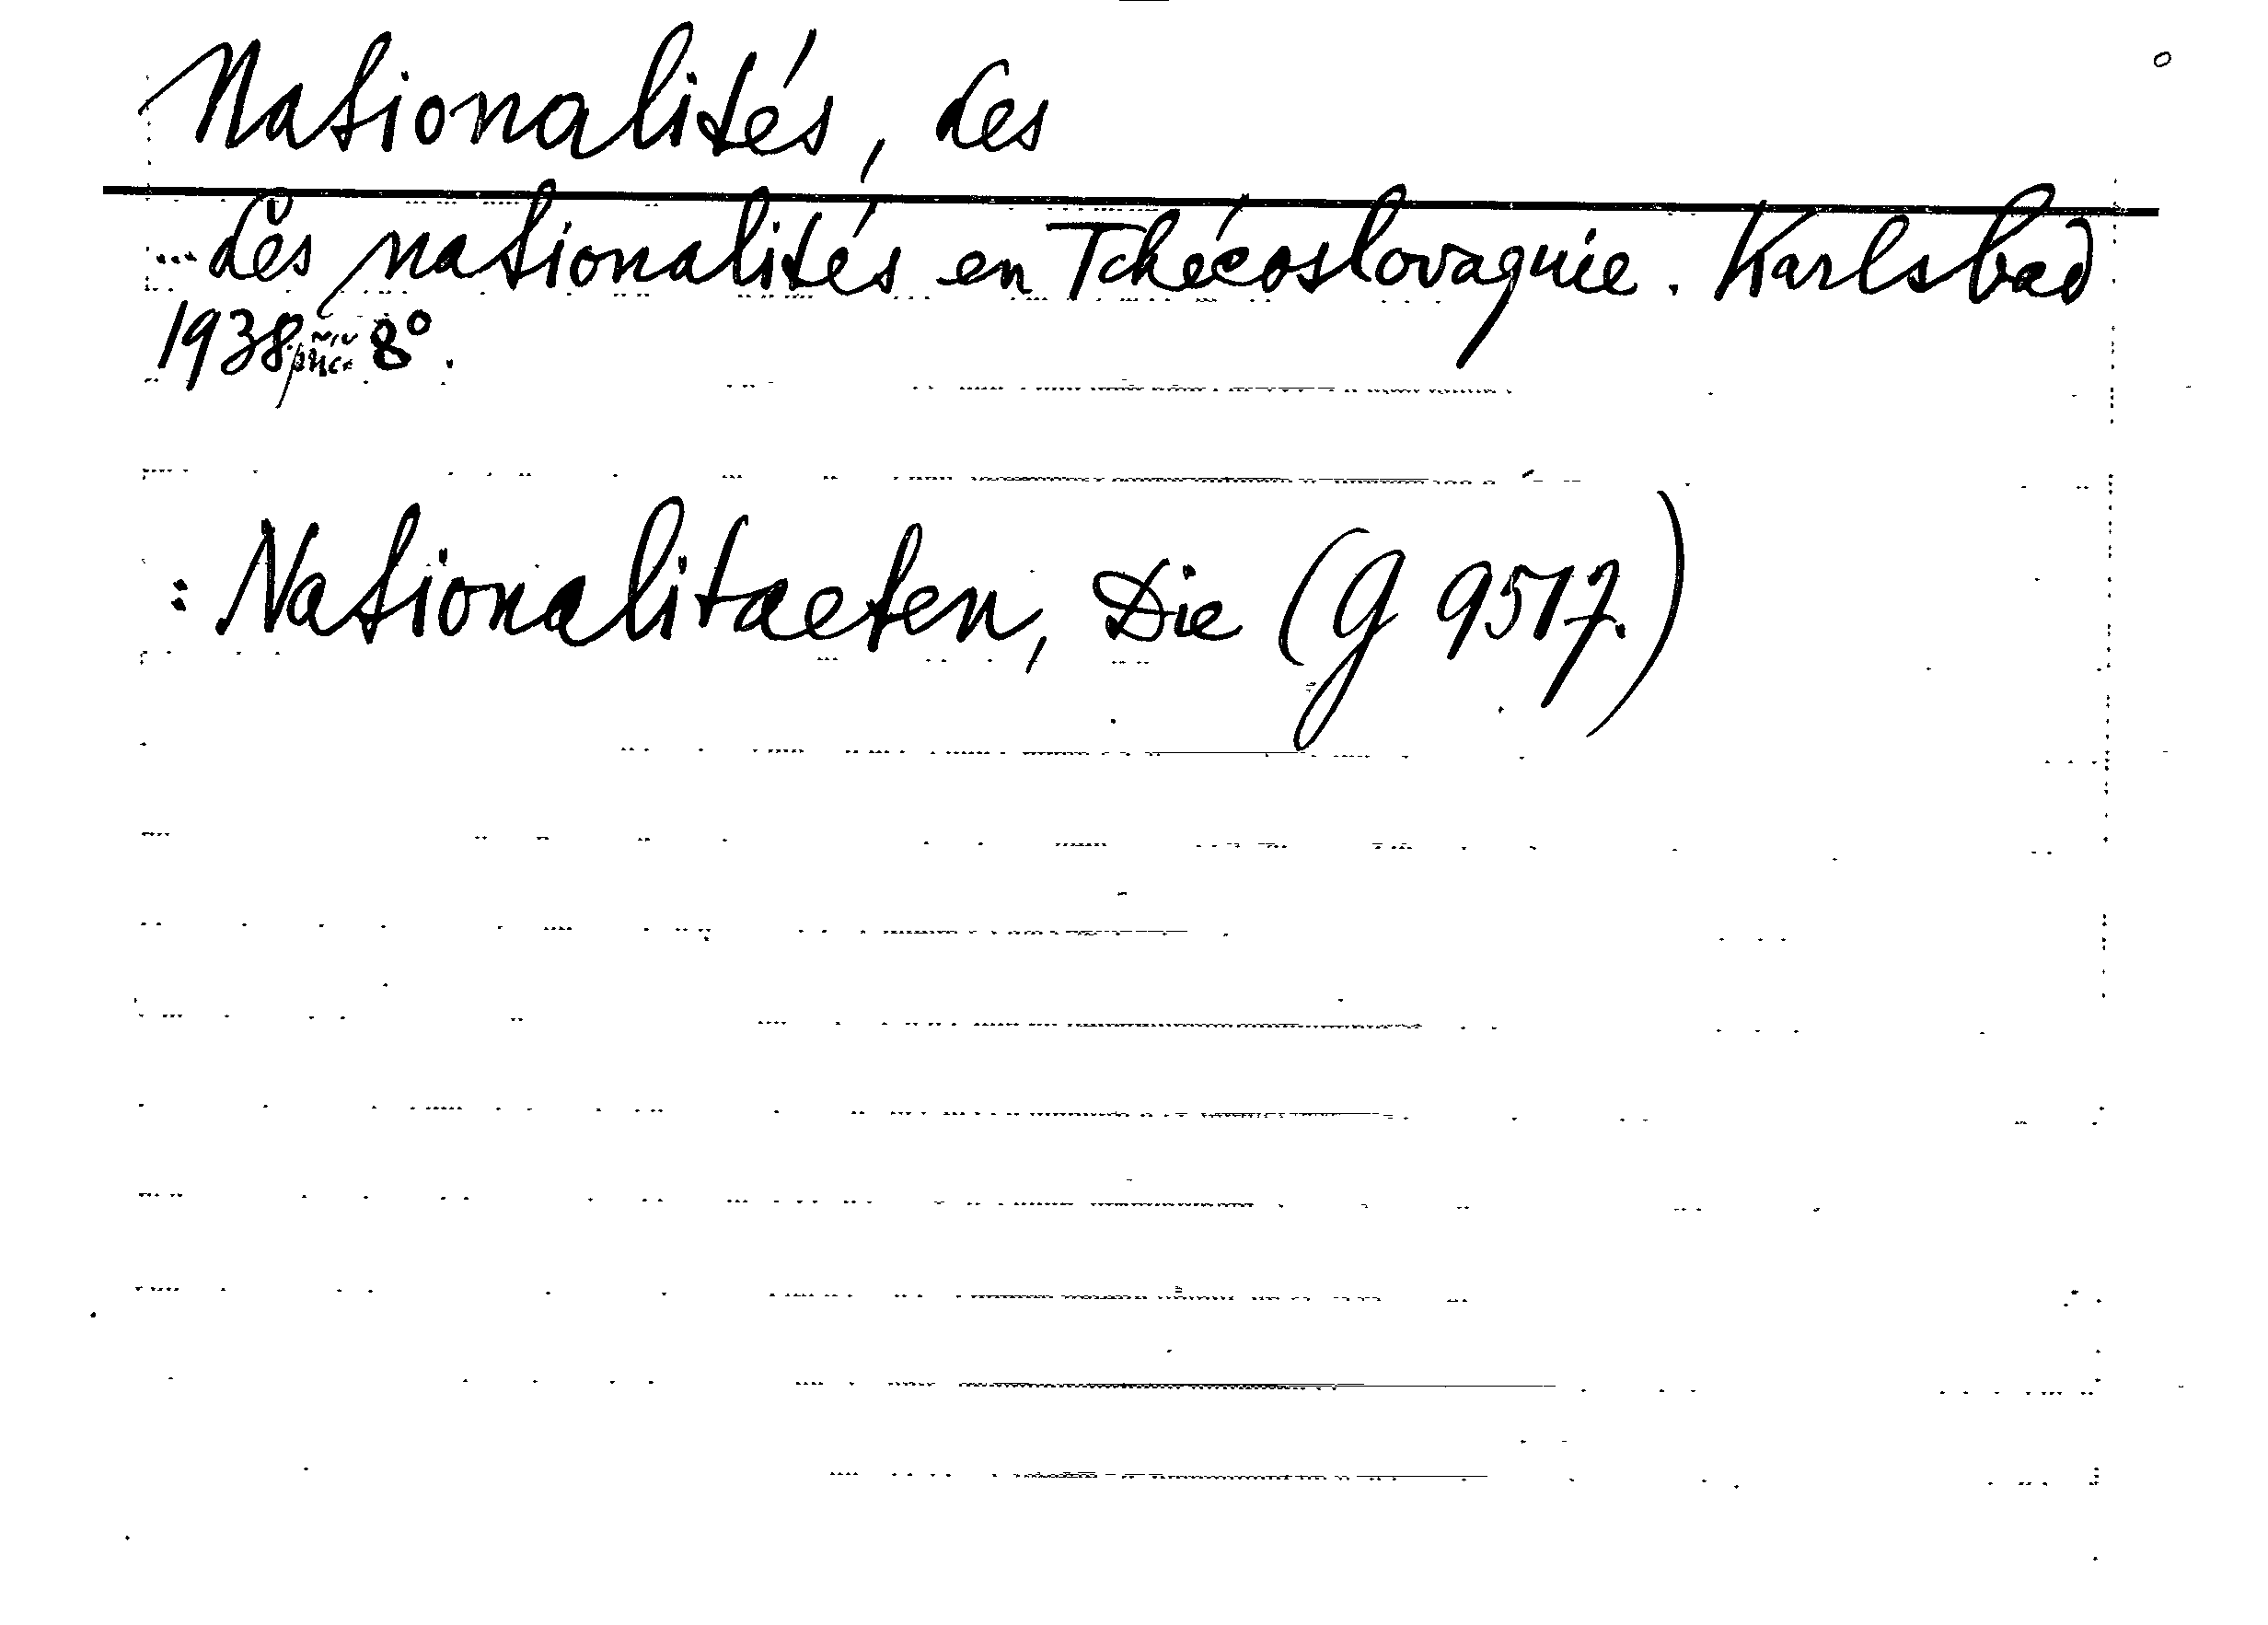 Nationalités, des
...des nationalités en Tchécoslovaquie. Karlsbad
1938 8°.
: Nationalitaeten, Die (G 9517.)